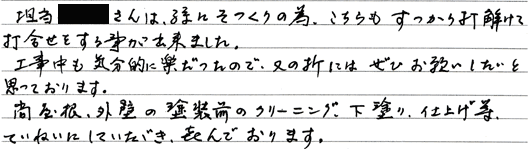 担当 さんは、孫にそっくりの為、こちらもすっかり打解けて
打合せをする事が出来ました。
工事中も気分的に楽だったので、又の折にはぜひお願いしたいと
思っております。
尚屋根、外壁の塗装前のクリーニング、下塗り、仕上げ等、
ていねいにしていただき、喜んでおります。